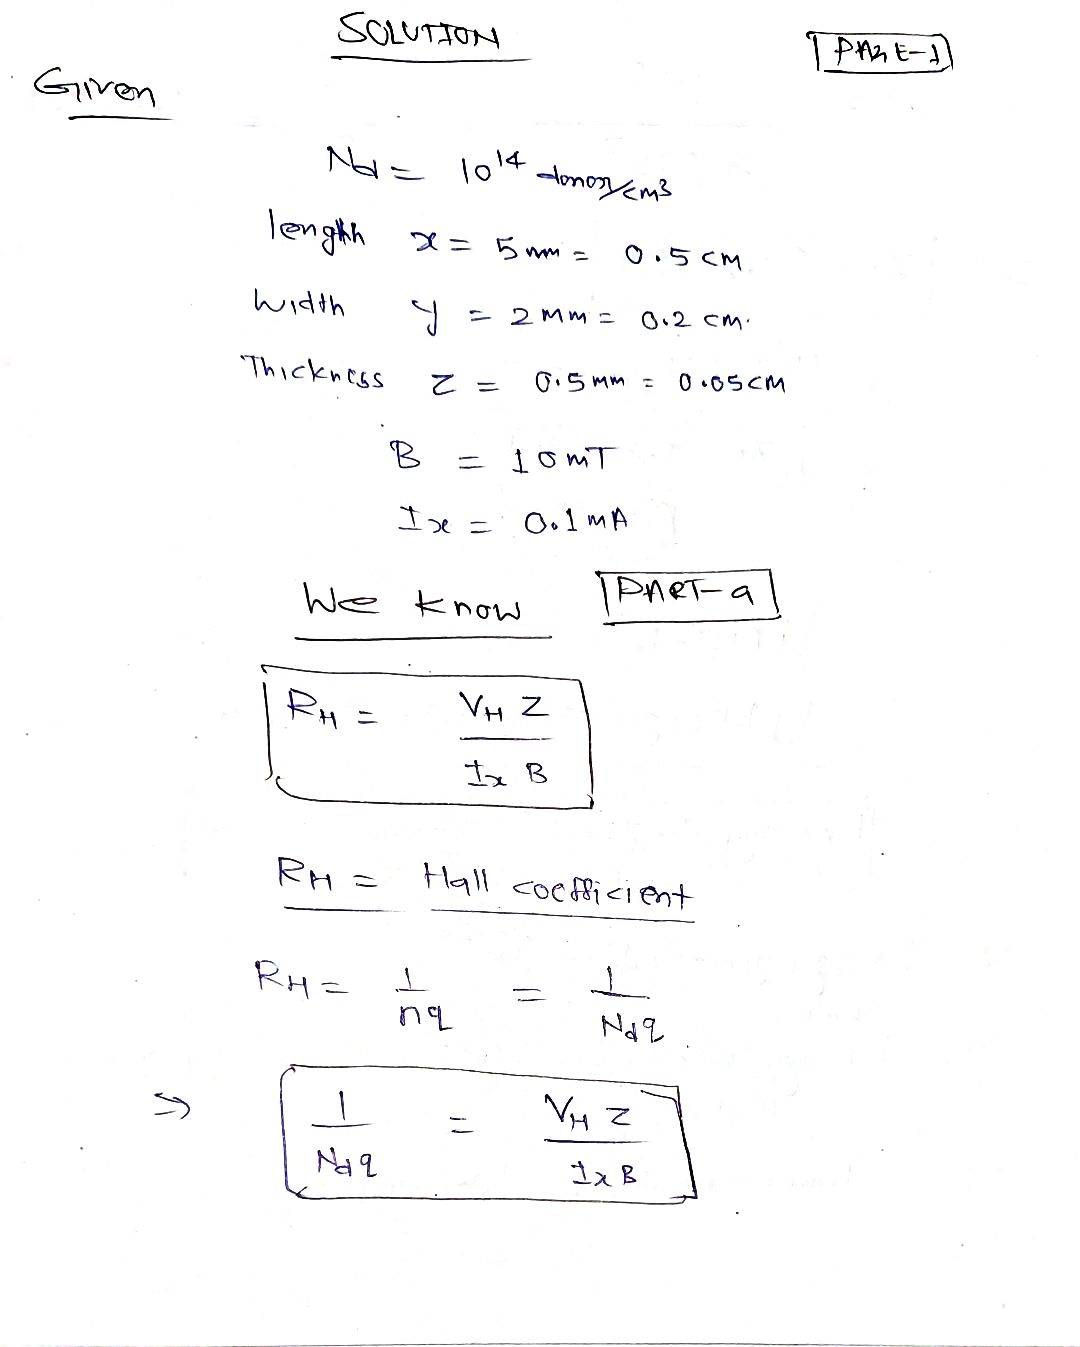 SOLUTION
PAGE-1
Given
Nd = 10^14 donor/cm3
length x = 5 mm = 0.5 cm
Width y = 2 mm = 0.2 cm.
Thickness z = 0.5 mm = 0.05 cm
B = 10 mT
Ix = 0.1 mA
We know
PART-a
RH = VH Z / Ix B
RH = Hall coefficient
RH = 1/nq = 1/Ndq
⇒ 1/Ndq = VH Z / Ix B